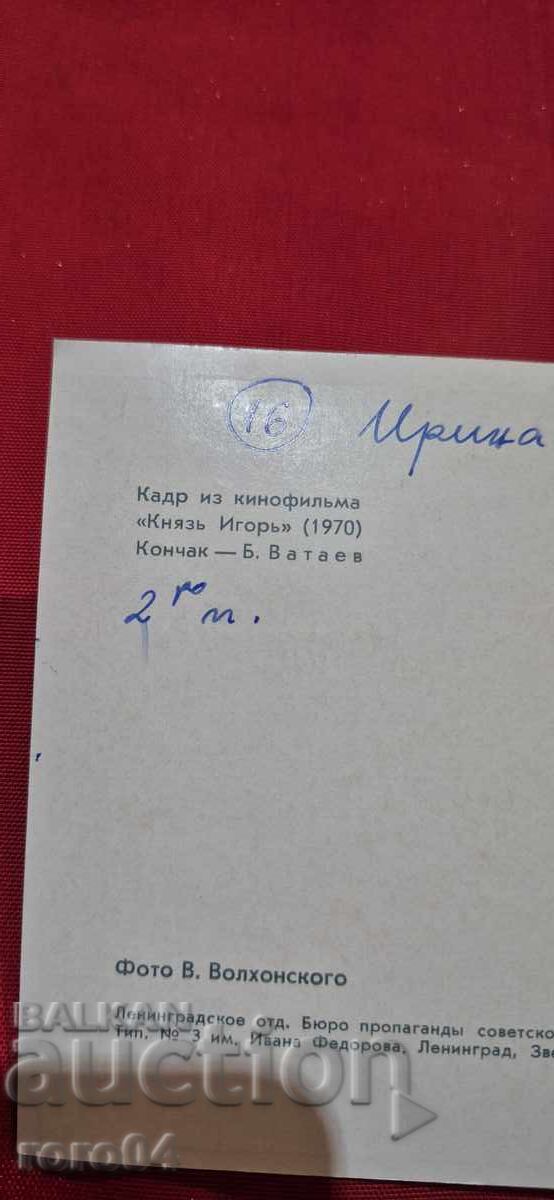 16 Ирина
Кадр из кинофильма
«Князь Игорь» (1970)
Кончак — Б. Ватаев
2 го п.
Фото В. Волхонского
Ленинградское отд. Бюро пропаганды советско
Тип. № 3 им. Ивана Федорова, Ленинград, Зве
BALKAN
auction
roro04